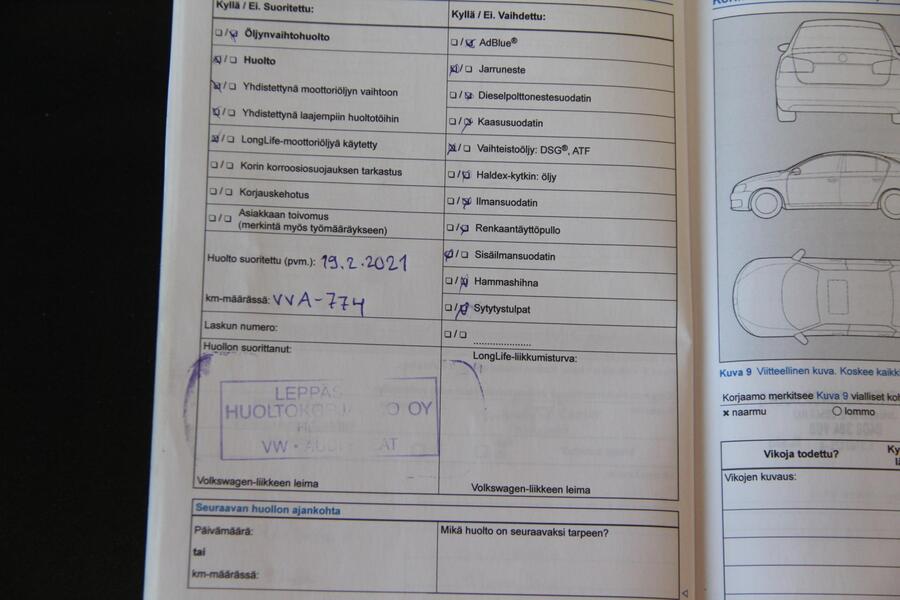 Kyllä / Ei. Suoritettu:
☐ / ☒ Öljynvaihtohuolto
☒ / ☐ Huolto
☒ / ☐ Yhdistettynä moottoriöljyn vaihtoon
☒ / ☐ Yhdistettynä laajempiin huoltotöihin
☒ / ☐ LongLife-moottoriöljyä käytetty
☐ / ☐ Korin korroosiosuojauksen tarkastus
☐ / ☐ Korjauskehotus
☐ / ☐ Asiakkaan toivomus
(merkintä myös työmääräykseen)
Huolto suoritettu (pvm.): 19.2.2021
km-määrässä: VVA-774
Laskun numero:
Huollon suorittanut:
LEPPÄS
HUOLTOKO OY
VW • AUDI
Volkswagen-liikkeen leima
Kyllä / Ei. Vaihdettu:
☐ / ☒ AdBlue®
☒ / ☐ Jarruneste
☐ / ☒ Dieselpolttonestesuodatin
☐ / ☒ Kaasusuodatin
☒ / ☐ Vaihteistoöljy: DSG®, ATF
☐ / ☒ Haldex-kytkin: öljy
☐ / ☒ Ilmansuodatin
☐ / ☒ Renkaantäyttöpullo
☒ / ☐ Sisäilmansuodatin
☐ / ☒ Hammashihna
☐ / ☒ Sytytystulpat
☐ / ☐ ......................
LongLife-liikkumisturva:
Volkswagen-liikkeen leima
Seuraavan huollon ajankohta
Päivämäärä:
tai
km-määrässä:
Mikä huolto on seuraavaksi tarpeen?
Kuva 9 Viitteellinen kuva. Koskee
Korjaamo merkitsee Kuva 9 vialliset
x naarmu ○ lommo
Vikoja todettu?
Vikojen kuvaus: